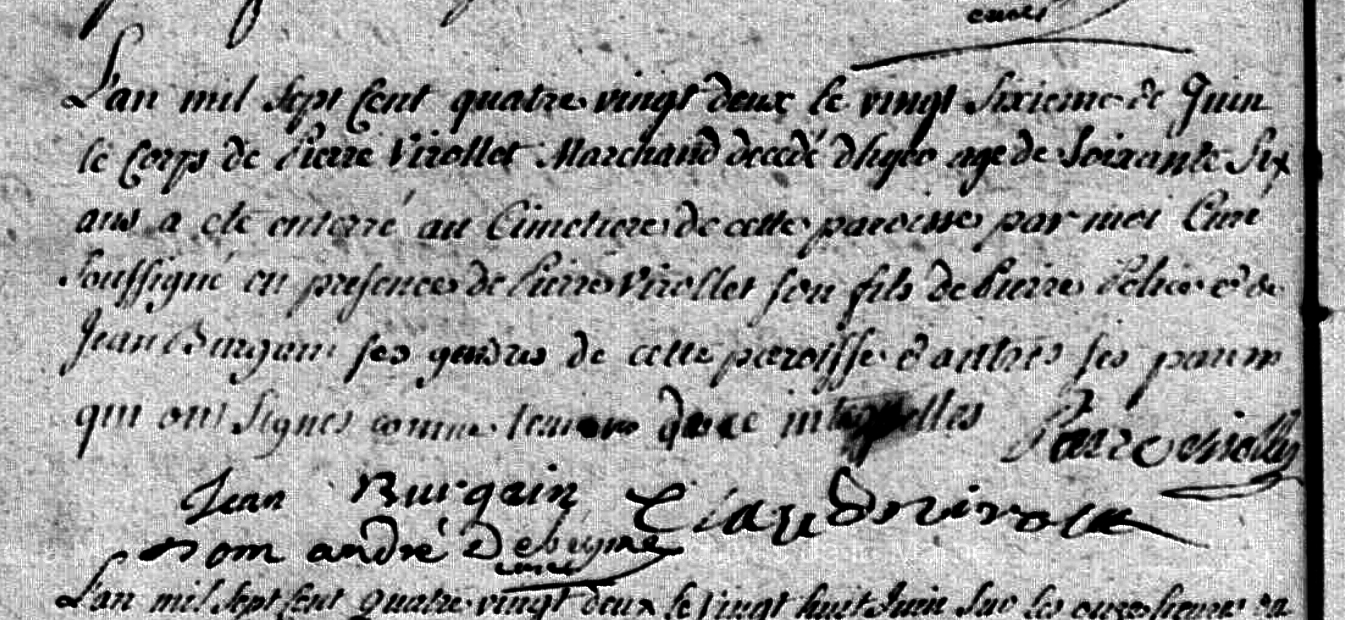 curé
L'an mil sept Cent quatre vingt deux le vingt Sixieme de Juin
le Corps de Pierre Virollet Marchand decedé d'hyer age de Soixante Six
ans a eté enterré au Cimetiere de cette paroisse par moi Curé
Soussigné en presence de Pierre Virollet son fils de Pierre et de
Jean Burgain ses gendres de cette paroisse et autres ses parens
qui ont Signes comme temoins de ce
Pierre virollet
Jean Burgain Claude virolet
Dom andré
curé
L'an mil Sept Cent quatre vingt deux le vingt huit Juin Sur les onze heures